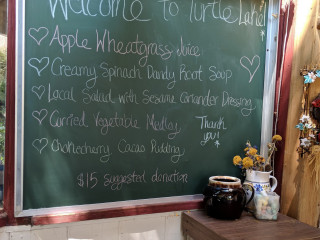 Welcome to Turtle Lane
Apple Wheatgrass Juice
Creamy Spinach Dandy Root Soop
Local Salad with Sesame Coriander Dressing
Curried Vegetable Medley
Thank you!
Chokecherry Cacao Pudding
$15 suggested donation